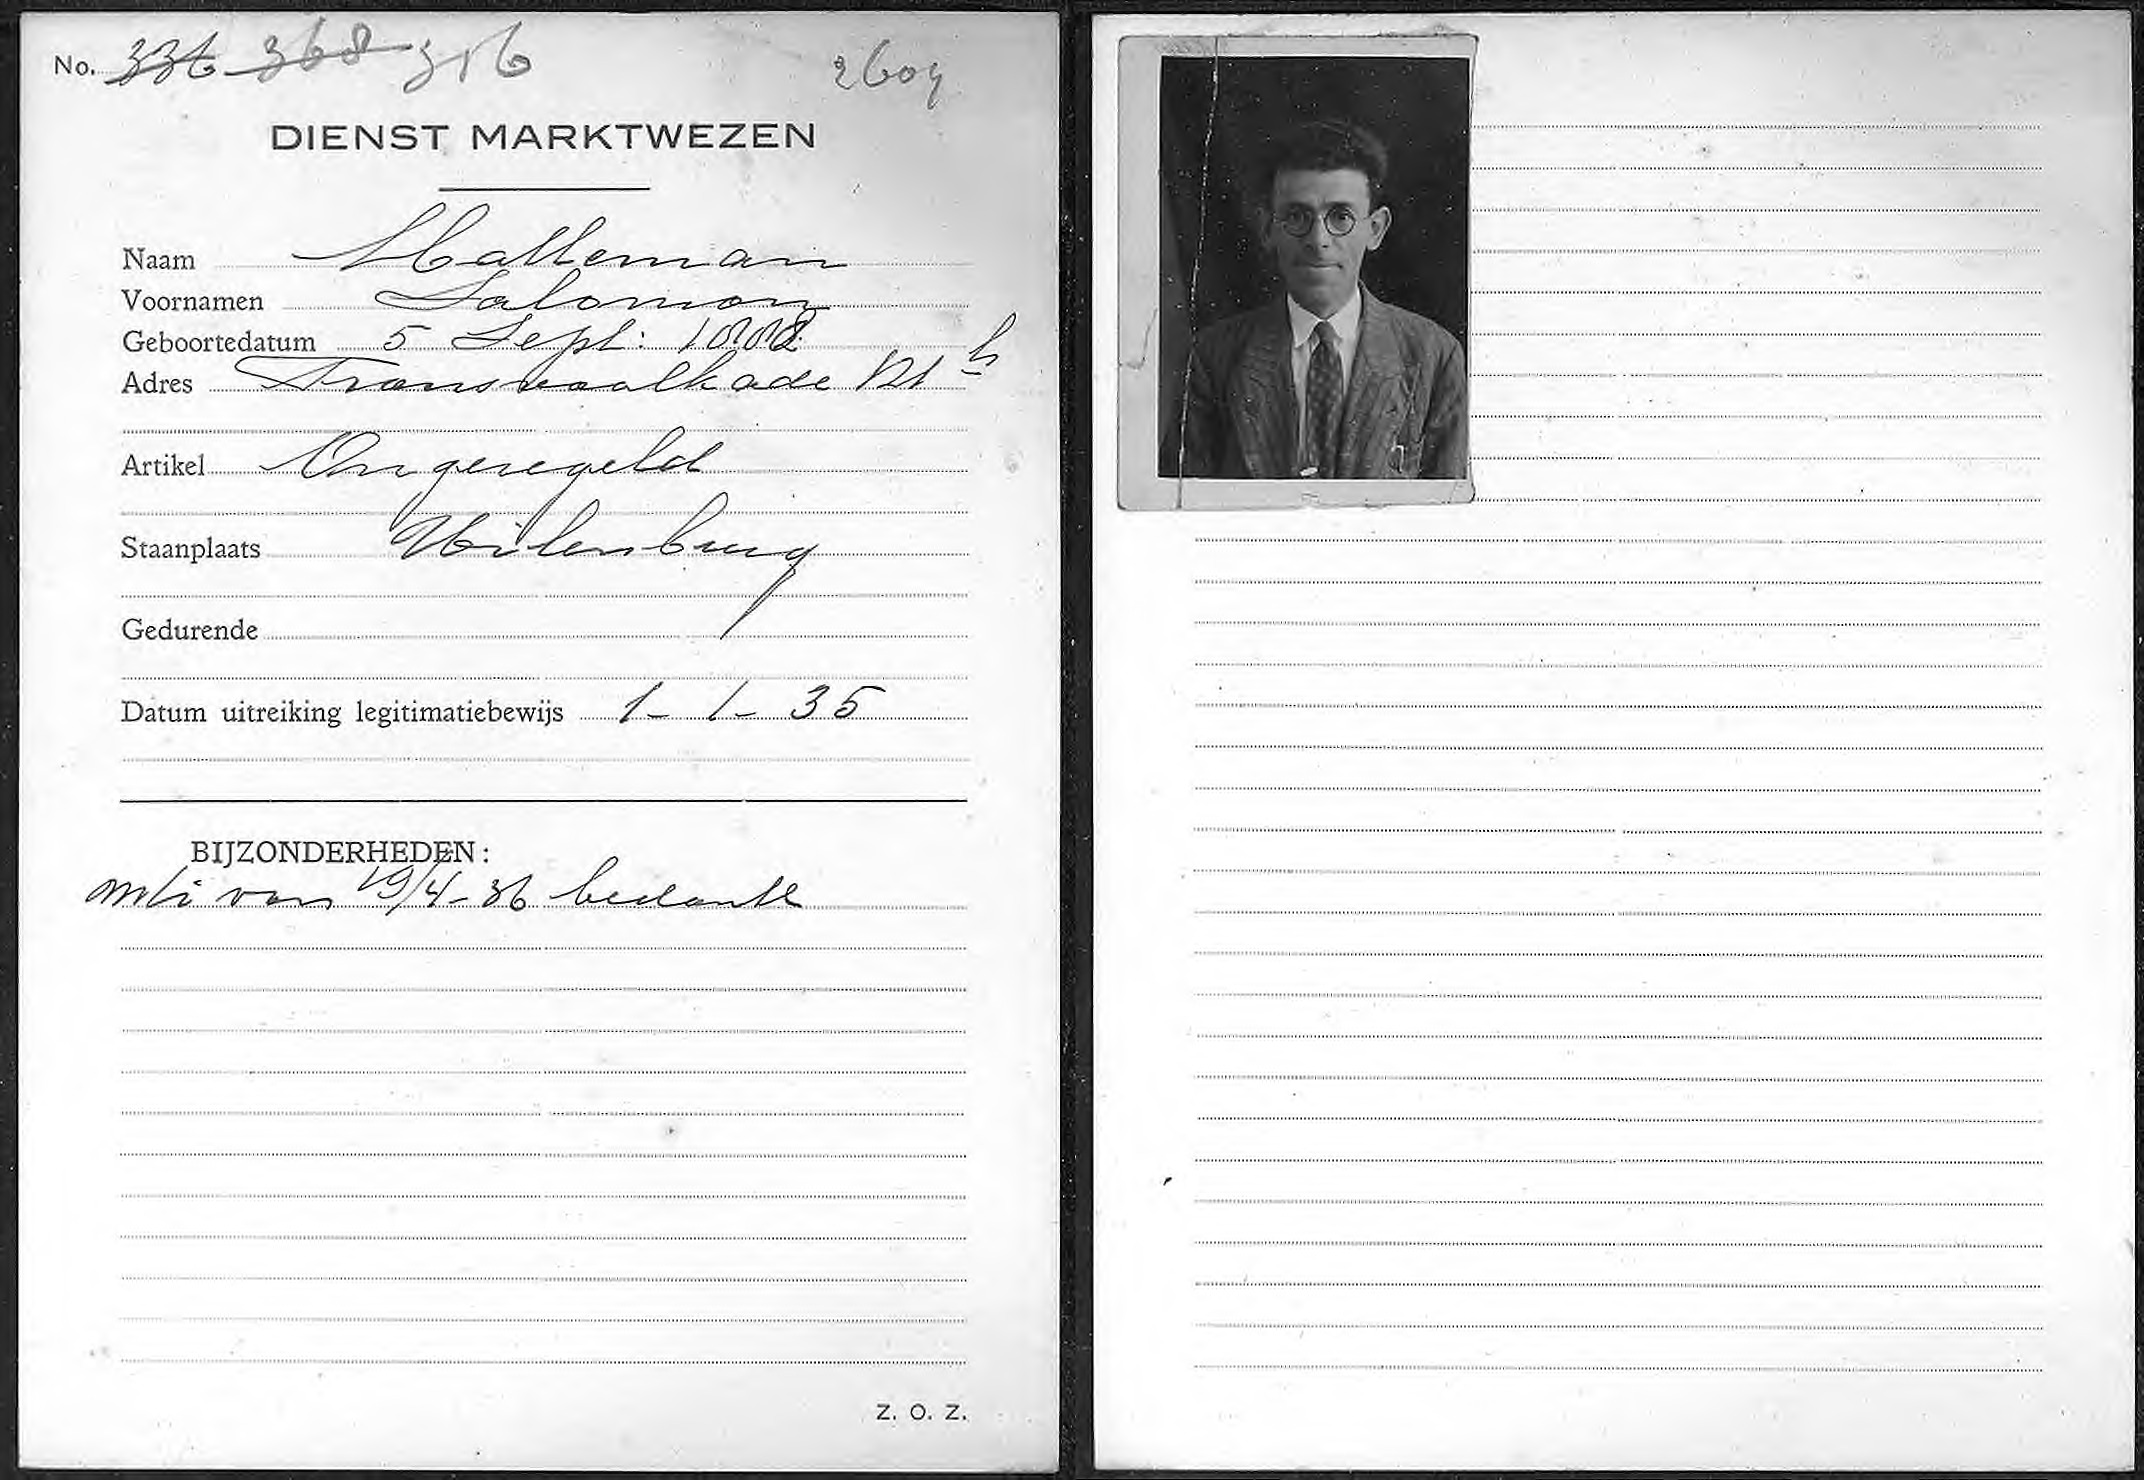 No. 336 368 316 2609
DIENST MARKTWEZEN
Naam
Voornamen Salomon
Geboortedatum 5 Sept: 1888
Adres Transvaalkade 121 h
Artikel Ongeregeld
Staanplaats Uilenburg
Gedurende
Datum uitreiking legitimatiebewijs 1-1-35
BIJZONDERHEDEN:
van 19/4-36 bedankt
Z. O. Z.